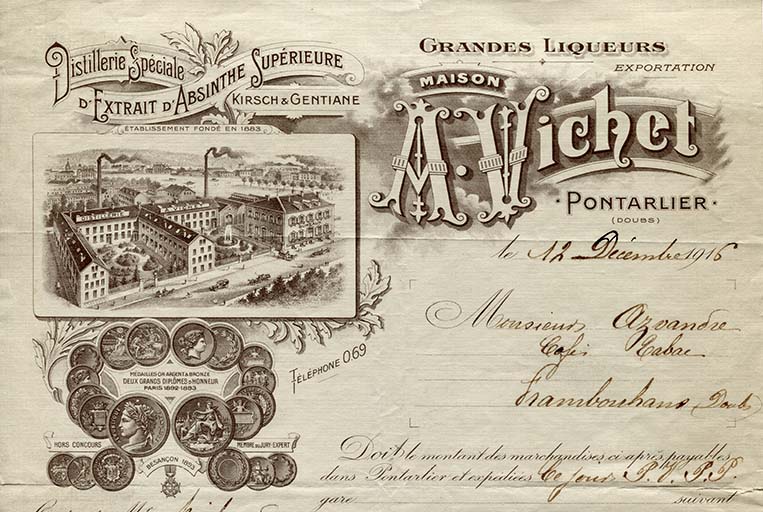 Distillerie Spéciale
D'Extrait d'Absinthe Supérieure
Kirsch & Gentiane
ÉTABLISSEMENT FONDÉ EN 1883
DISTILLERIE
A. VICHET
GRANDES LIQUEURS
EXPORTATION
MAISON
A. Vichet
· PONTARLIER ·
(DOUBS)
le 12 Décembre 1916
Monsieur Azvandre
Cafés Tabac
Frambouhans (Doubs)
TÉLÉPHONE 0.69
MÉDAILLES OR ARGENT & BRONZE
DEUX GRANDS DIPLÔMES D'HONNEUR
PARIS 1892-1893
HORS CONCOURS
MEMBRE DU JURY-EXPERT
BESANÇON 1893
Doit le montant des marchandises ci après payables
dans Pontarlier et expédiées Ce jour P.V. P.P.
gare suivant